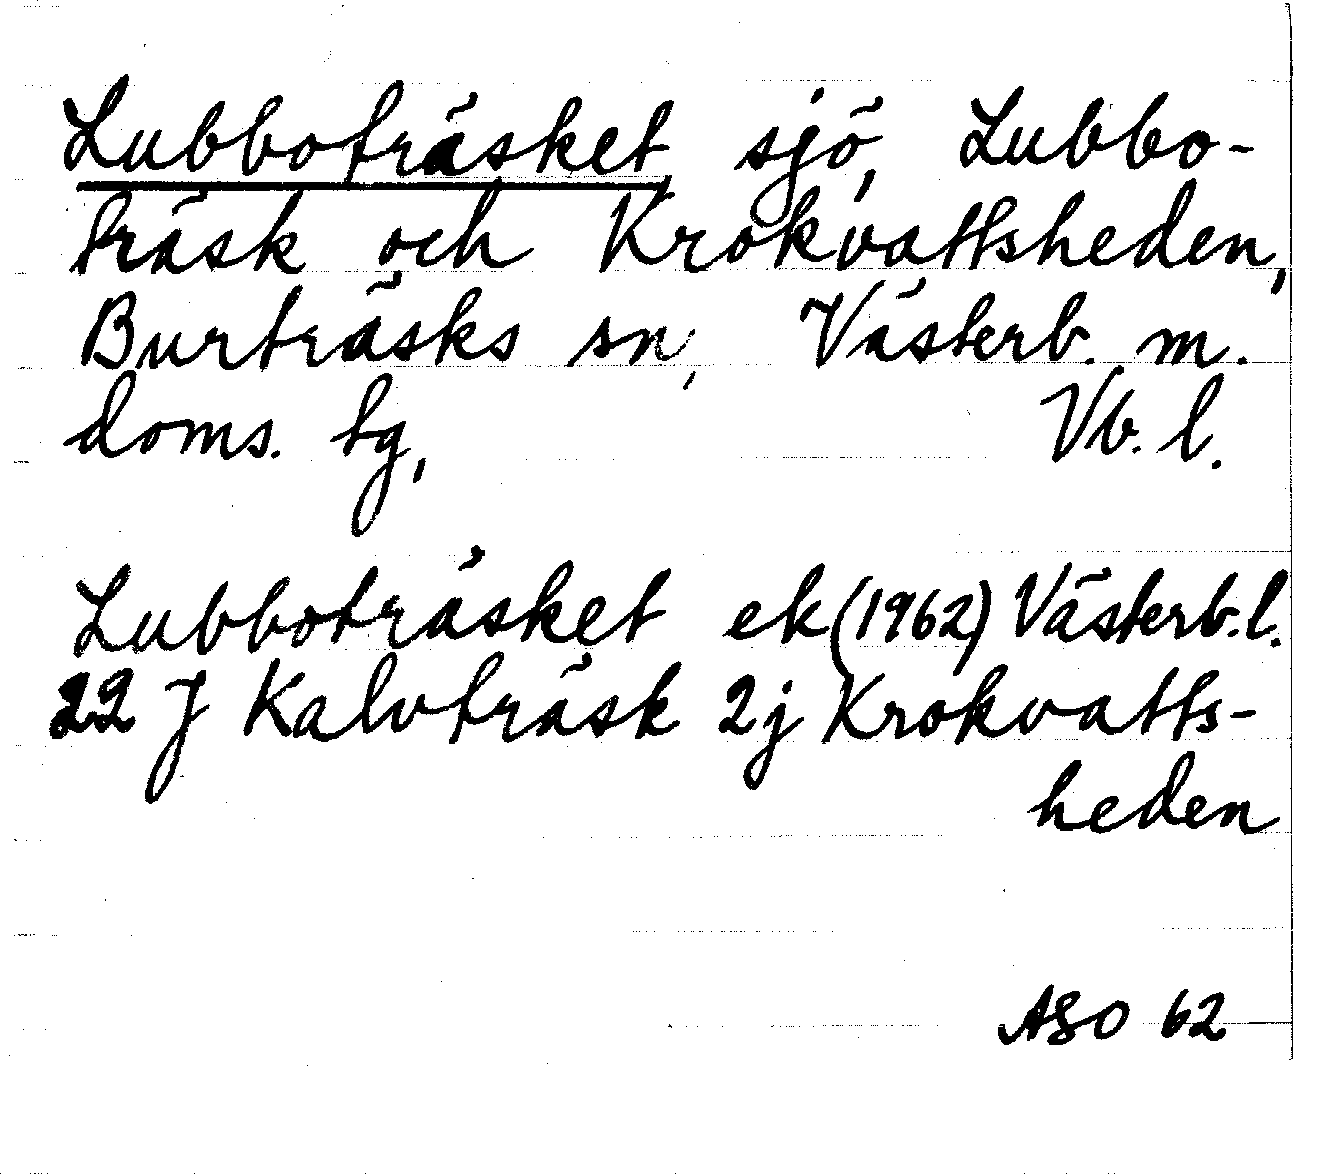 Lubboträsket, sjö, Lubbo-
träsk och Krokvattsheden,
Burträsks sn, Västerb. m.
doms. tg, Vb. l.
Lubboträsket ek (1962) Västerb. l.
22 J Kalvträsk 2j Krokvatts-
heden
ASO 62